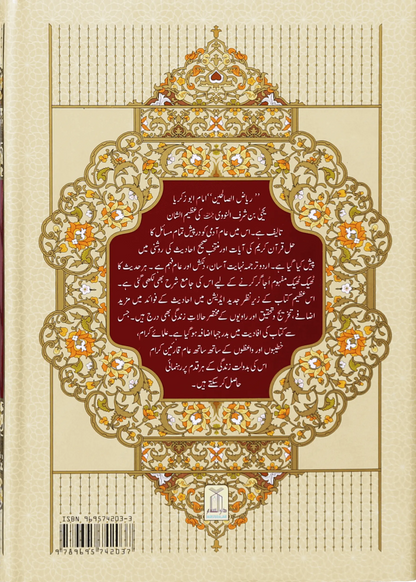 "ریاض الصالحین" امام ابو زکریا
یحییٰ بن شرف النووی رحمۃ اللہ کی عظیم الشان
تالیف ہے۔ اس میں عام آدمی کو درپیش تمام مسائل کا
حل قرآن کریم کی آیات اور منتخب صحیح احادیث کی روشنی میں
پیش کیا گیا ہے۔ اردو ترجمہ نہایت آسان، دلکش اور عام فہم ہے۔ ہر حدیث کا
ٹھیک ٹھیک مفہوم اُجاگر کرنے کے لیے اس کی جامع شرح بھی لکھی گئی ہے۔
اس عظیم کتاب کے زیر نظر جدید ایڈیشن میں احادیث کے فوائد میں مزید
اضافے، تخریج و تحقیق اور راویوں کے مختصر حالات زندگی بھی درج ہیں۔ جس
سے کتاب کی افادیت میں بدرجہا اضافہ ہو گیا ہے۔ علمائے کرام،
خطیبوں اور واعظوں کے ساتھ ساتھ عام قارئین کرام
اس کی بدولت زندگی کے ہر قدم پر رہنمائی
حاصل کر سکتے ہیں۔
ISBN: 969574203-3
9 789695 742037